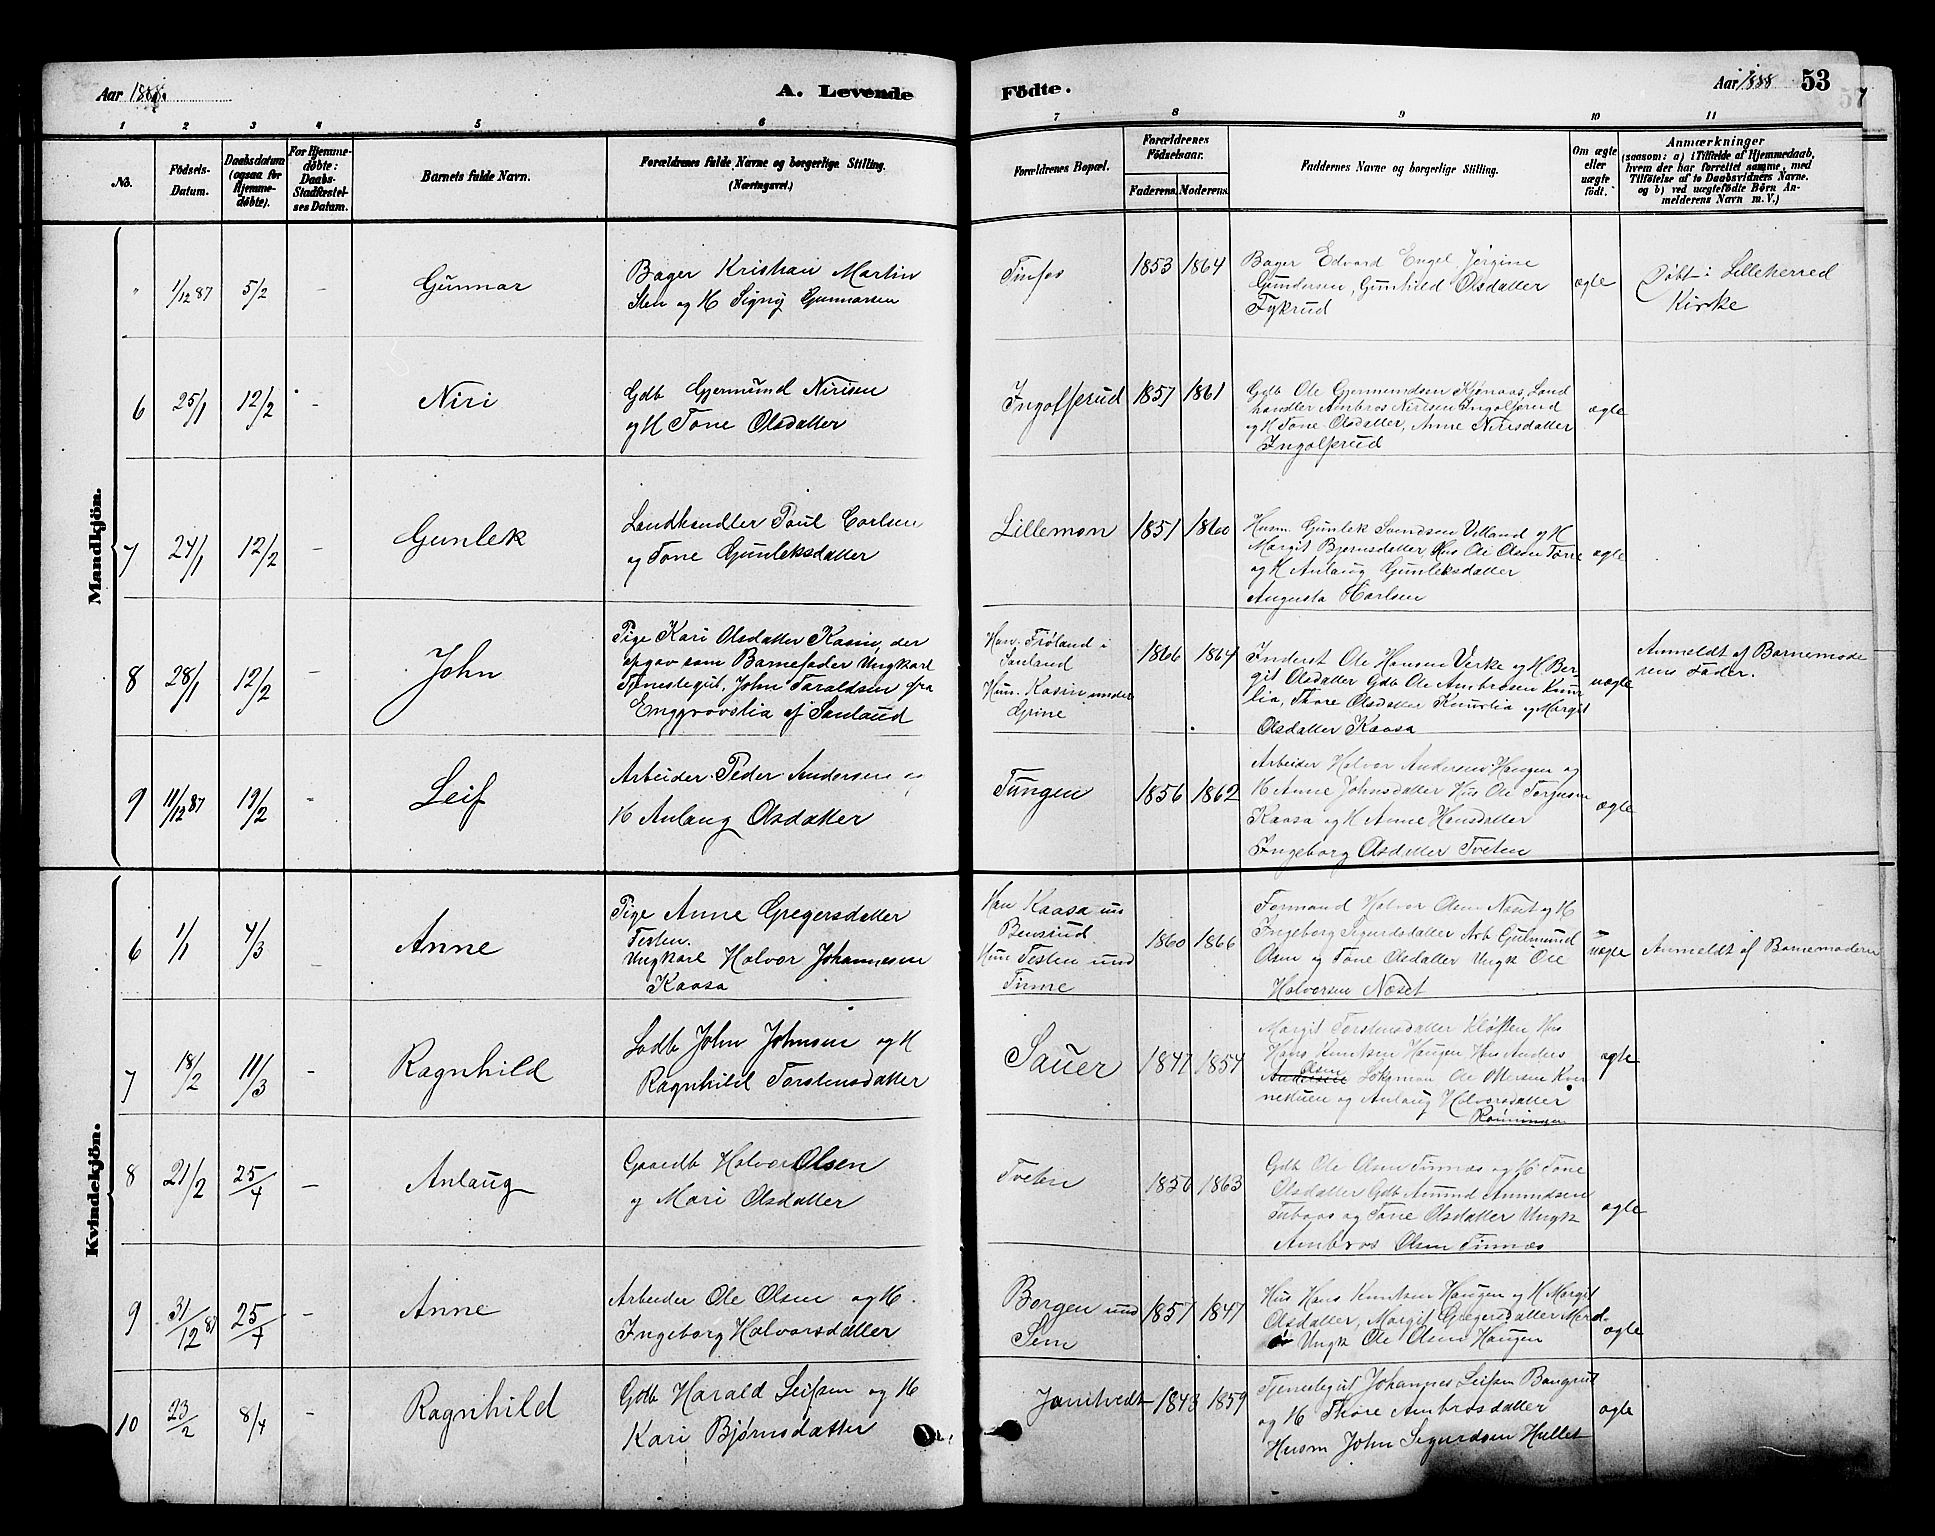 Aar 1888.
A. Levende
Fødte.
Aar 1888
53
57
1
2
3
4
5
6
7
8
9
10
11
No.
Fødsels-
Datum.
Daabsdatum
(ogsaa for
Hjemme-
døbte).
For Hjemme-
døbte:
Daabs-
Stadfæstel-
ses Datum.
Barnets fulde Navn.
Forældrenes fulde Navne og borgerlige Stilling.
(Næringsvei.)
Forældrenes Bopæl.
Forældrenes
Fødselsaar.
Faderens.
Moderens.
Faddernes Navne og borgerlige Stilling.
Om ægte
eller
uægte
født.
Anmærkninger
(saasom: a) i Tilfælde af Hjemmedaab,
hvem der har forrettet samme, med
Tilføielse af to Daabsvidners Navne,
og b) ved uægtefødte Børn An-
melderens Navn m. V.)
Mandkjön.
" 1/12 87 5/2 - Gunnar
Bager Kristian Martin
Sten og K Signy Gunnarsen
Tinfos
1853 1864
Bager Edvard Engel Jørgine
Gundersen, Gunhild Olsdatter
Fykrud
ægte
Døbt i Lilleherred
Kirke
6 25/1 12/2 - Niri
Gdb Gjermund Nirisen
og K Tone Olsdatter
Ingolfsrud
1857 1861
Gdb Ole Gjermundsen Kjønaas, Land
handler Ambros Nirisen Ingolfsrud
og K Tone Olsdatter, Anne Nirisdatter
Ingolfsrud
ægte
7 24/1 12/2 - Gunlek
Landhandler Paul Carlsen
og Tone Gunleksdatter
Lillemoen
1851 1860
Husm. Gunlek Svendsen Villand og K
Margit Bjørnsdatter Hus Ole Olsen Tone
og K Anlaug Gunleksdatter
Augusta Karlsen
ægte
8 28/1 12/2 - John
Pige Kari Olsdatter Kasin, der
opgav som Barnefader Ungkarl
Tjenestegut, John Taraldsen fra
Enggravslia af Sauland
Han. Frøland i
Sauland
Hun. Kasin under
Grine
1866 1864
Inderst Ole Hansen Verke og K Ber-
git Olsdatter Gdb Ole Ambrosen Knur
lia, Thore Olsdatter Knurlia og Margit
Olsdatter Kaasa
uægte
Anmeldt af Barnemode
rens Fader.
9 11/12 87 19/2 - Leif
Arbeider Peder Andersen og
K Anlaug Olsdatter
Tungen
1856 1862
Arbeider Halvor Andersen Haugen og
K Anne Johnsdatter Hus Ole Torgusen
Kaasa og K Anne Hansdatter
Ingeborg Olsdatter Tveten
ægte
Kvindekjön.
6 1/1 4/3 - Anne
Pige Anne Gregersdatter
Testen.
Ungkarl Halvor Johannesen
Kaasa
Han Kaasa un
Bensrud.
Hun Testen und
Tinne
1860 1866
Formand Halvor Olsen Næset og K
Ingeborg Sigurdsdatter Arb Gulmund
Olsen og Tone Olsdatter Ungk Ole
Halvorsen Næset
uægte
Anmeldt af Barnemodern
7 18/2 11/3 - Ragnhild
Gdb John Johnsen og K
Ragnhild Torstensdatter
Sauer
1847 1854
Margit Torstensdatter Kløften Hus
Hans Knutsen Haugen Hus Anders
Olsen
Løksmoen Ole Olersen Kver
nekuen og Anlaug Halvorsdatter
Rønningen
ægte
8 21/2 25/4 - Anlaug
Gaardb Halvor Olsen
og Mari Olsdatter
Tveten
1856 1863
Gdb Ole Olsen Tinnæs og K Tone
Olsdatter Gdb Amund Amundsen
og Tone Olsdatter Ungk
Ambros Olsen Tinnæs
ægte
9 31/12 87 25/4 - Anne
Arbeider Ole Olsen og K
Ingeborg Halvorsdatter
Borgen und
Sem
1857 1847
Hus Hans Knutsen Haugen og K Margit
Olsdatter, Margit Gregersdatter
Ungk Ole Olsen Haugen
ægte
10 23/2 8/4 - Ragnhild
Gdb Harald Leifsen og K
Kari Bjørnsdatter
Jamtvedt
1848 1859
Tjenestegut Johannes Leifsen Bangrud
og K Thore Ambrosdatter
Husm John Sigurdsen Hullet
ægte